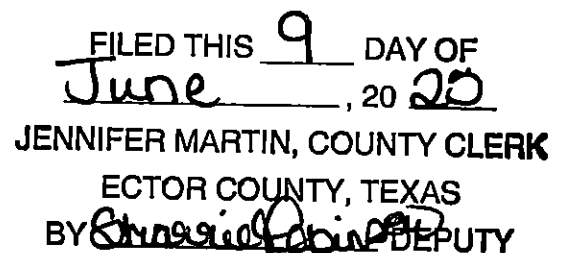 FILED THIS 9 DAY OF
June, 20 20
JENNIFER MARTIN, COUNTY CLERK
ECTOR COUNTY, TEXAS
BY DEPUTY